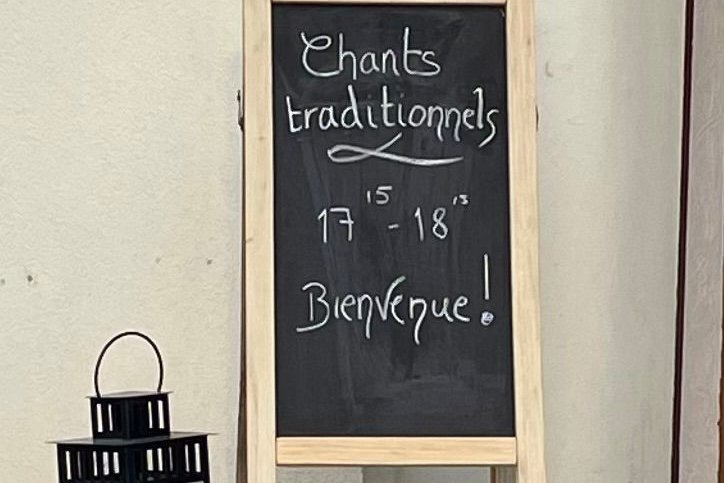 Chants
traditionnels
17 15 - 18 15
Bienvenue !